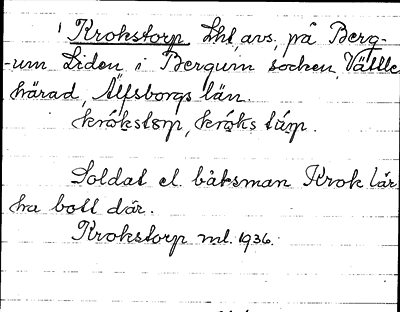 Krokstorp Lht, avs. på Berg-
-um Liden i Bergum socken, Vättle
härad, Älfsborgs län.
krókstorp, króks tárp.
Soldat el. båtsman Krok lär
ha bott där.
Krokstorp ml. 1936.